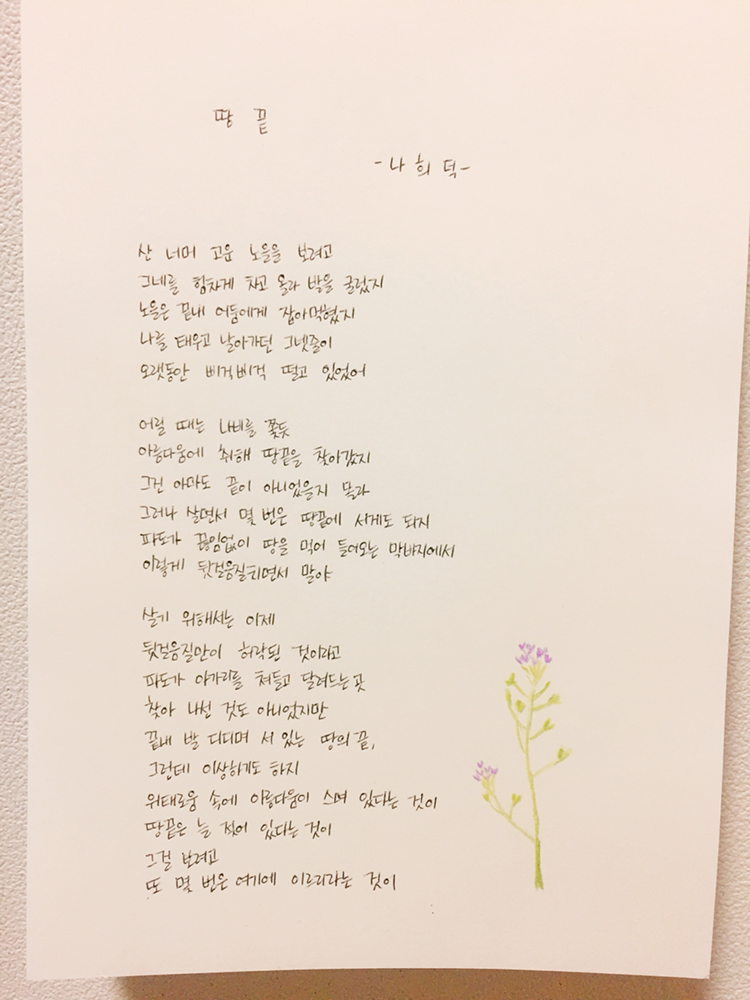 땅 끝
-나 희 덕-
산 너머 고운 노을을 보려고
그네를 힘차게 차고 올라 발을 굴렀지
노을은 끝내 어둠에게 잡아먹혔지
나를 태우고 날아가던 그넷줄이
오랫동안 삐걱삐걱 떨고 있었어
어릴 때는 나비를 쫓듯
아름다움에 취해 땅끝을 찾아갔지
그건 아마도 끝이 아니었을지 몰라
그러나 살면서 몇 번은 땅끝에 서게도 되지
파도가 끊임없이 땅을 먹어 들어오는 막바지에서
이렇게 뒷걸음질치면서 말야
살기 위해서는 이제
뒷걸음질만이 허락된 것이라고
파도가 아가리를 쳐들고 달려드는 곳
찾아 나선 것도 아니었지만
끝내 발 디디며 서 있는 땅의 끝,
그런데 이상하기도 하지
위태로움 속에 아름다움이 스며 있다는 것이
땅끝은 늘 젖어 있다는 것이
그걸 보려고
또 몇 번은 여기에 이르리라는 것이